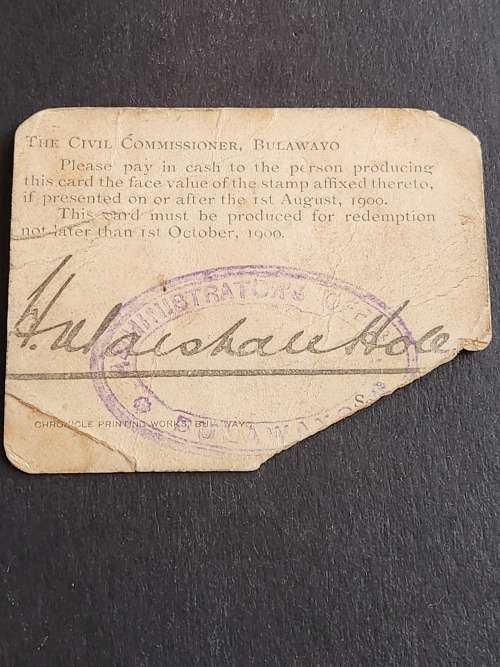 THE CIVIL COMMISSIONER, BULAWAYO
Please pay in cash to the person producing
this card the face value of the stamp affixed thereto,
if presented on or after the 1st August, 1900.
This card must be produced for redemption
not later than 1st October, 1900.
H. Marshall Hole
ADMINISTRATOR'S OFF
BULAWAYO
CHRONICLE PRINTING WORKS, BULAWAYO